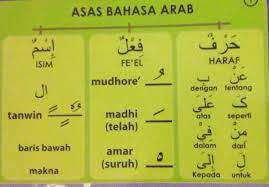 ASAS BAHASA ARAB
اِسْمٌ
ISIM
ال
tanwin ـًـٍـٌ
baris bawah
makna
فِعْلٌ
FE'EL
mudhore' ـُ
madhi ـَ
(telah)
amar ـْ
(suruh)
حَرْفٌ
HARAF
بِ عَنْ
dengan tentang
عَلَى كَ
atas seperti
فِيْ مِنْ
dalam dari
إِلَى لِ
Kepada untuk